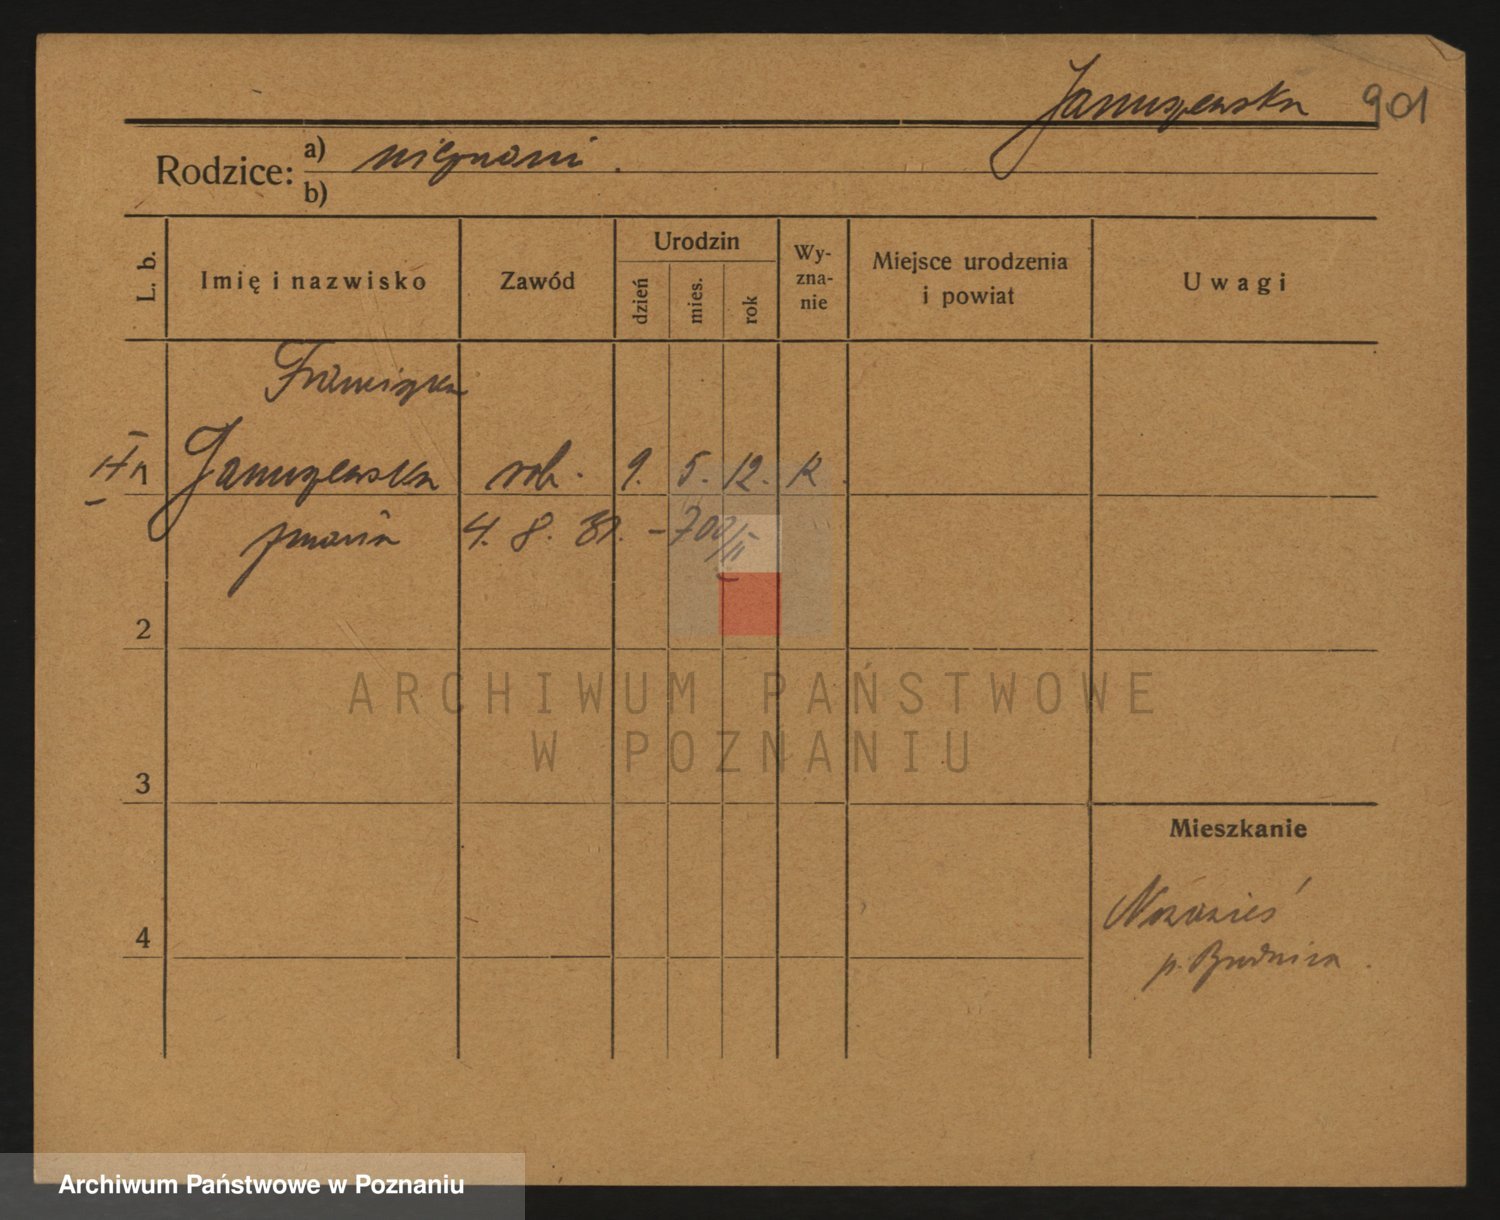 Januszewska 901
Rodzice: a) nieznani.
b)
L. b.
Imię i nazwisko
Zawód
Urodzin
dzień
mies.
rok
Wy-
zna-
nie
Miejsce urodzenia
i powiat
Uwagi
Franciszka
1 Januszewska rob. 9. 5. 12. R.
zmarła 4. 8. 31. - 700/II
2
3
4
Mieszkanie
p. Brodnica.
ARCHIWUM PAŃSTWOWE
W POZNANIU
Archiwum Państwowe w Poznaniu